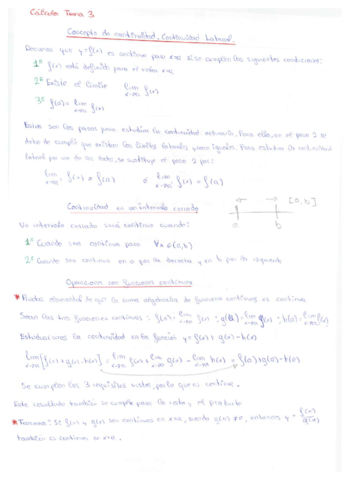 Cálculo Tema 3
Concepto de continuidad. Continuidad lateral.
Decimos que y=f(x) es continua para x=a si se cumplen las siguientes condiciones:
1º f(x) está definida para el valor x=a
2º Existe el límite lim x→a f(x)
3º f(a) = lim x→a f(x)
Estos son los pasos para estudiar la continuidad en un pto. Para ello, en el paso 2 se
debe de cumplir que existan los límites laterales y sean iguales. Para estudiar la continuidad
lateral por uno de sus lados, se sustituye el paso 2 por:
lim x→a⁻ f(x) = f(a) ó lim x→a⁺ f(x) = f(a)
Continuidad en un intervalo cerrado
[a,b]
a b
Un intervalo cerrado será continuo cuando:
1º Cuando sea continua para ∀x∈(a,b)
2º Cuando sea continua en a por la derecha y en b por la izquierda
Operaciones con funciones continuas
* Prueba elemental de q' la suma algebraica de funciones continuas es continua
Sean las tres funciones continuas: f(a) = lim x→a f(x); g(a) = lim x→a g(x); h(a) = lim x→a h(x)
Estudiaremos la continuidad en la función y = f(x) + g(x) - h(x)
lim x→a [f(x)+g(x)-h(x)] = lim x→a f(x) + lim x→a g(x) - lim x→a h(x) = f(a)+g(a)-h(a)
Se cumplen los 3 requisitos vistos, por lo que es continua.
Este resultado también se cumple para la resta y el producto
* Teorema: Si f(x) y g(x) son continuas en x=a, siendo g(x) ≠0, entonces y = f(x)/g(x)
también es continua en x=a.